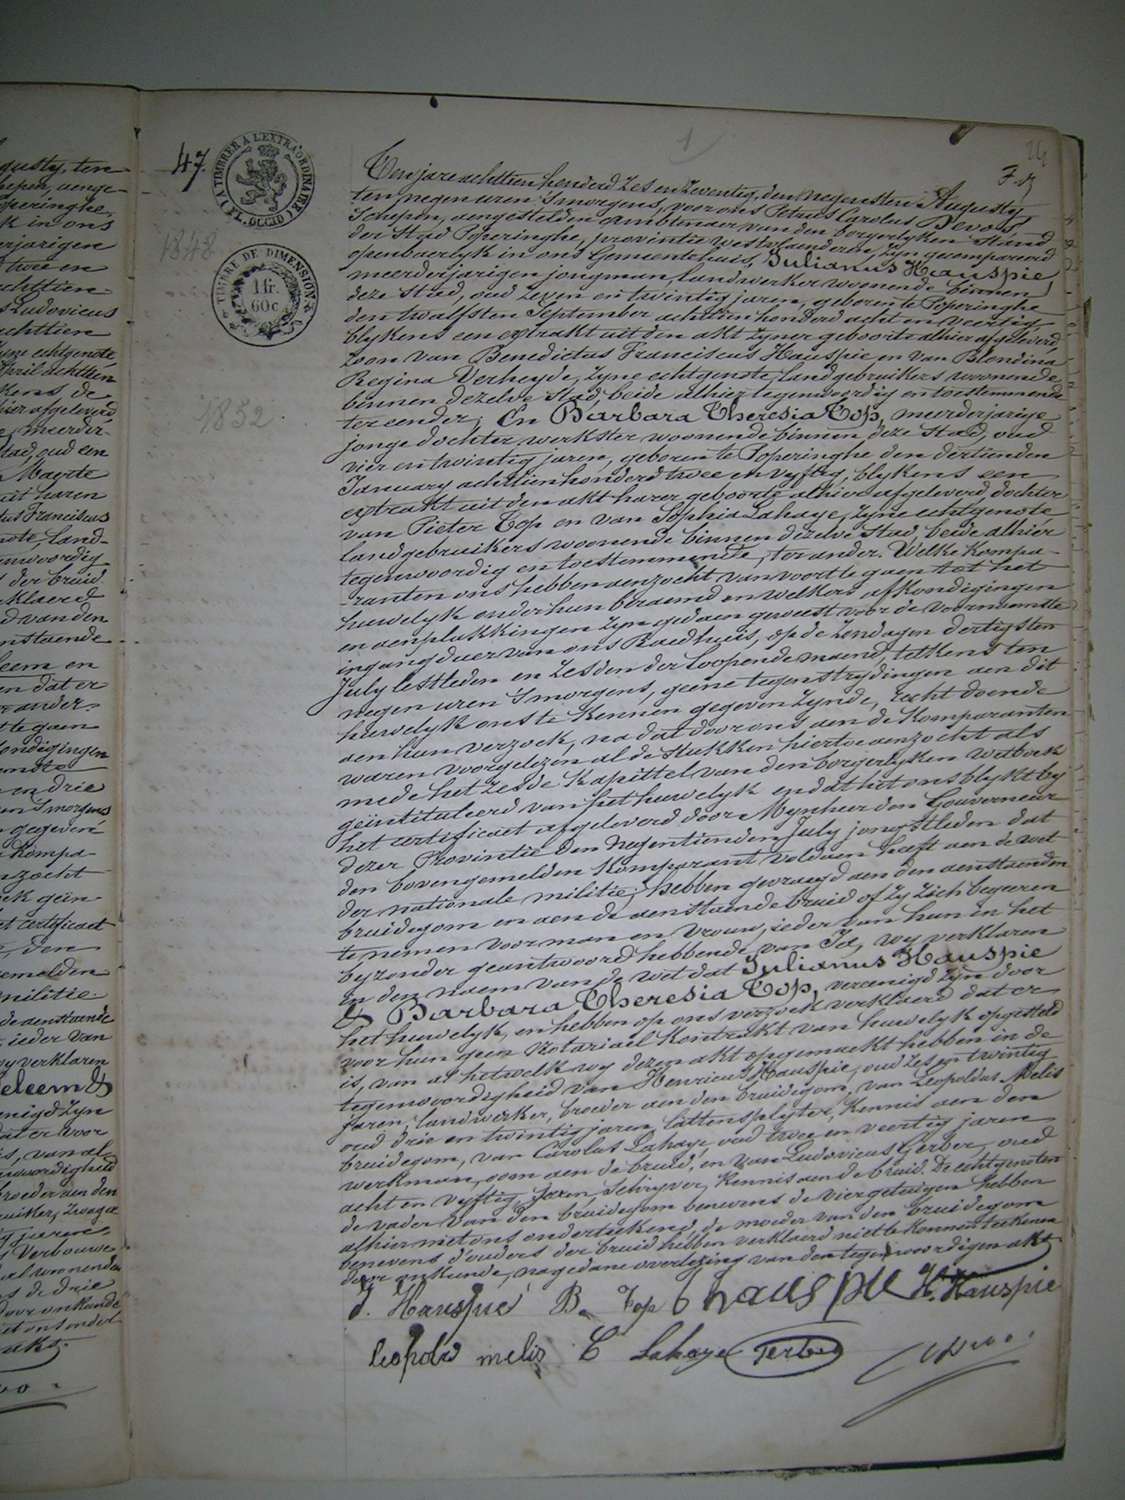 47.
A TIMBRER A L'EXTRAORDINAIRE
TIMBRE DE DIMENSION
1 fr. 60c
1848
1852
Ten jare achttien honderd zes en zeventig, den negensten Augusty
ten negen uren 's morgens, voor ons Petrus Carolus Devos,
Schepen, aengestelden Ambtenaer van den borgerlyken Stand
der Stad Poperinghe, provintie Westvlaenderen, zyn gecompareerd
openbaerlyk in ons Gemeentehuis, Julianus Hauspie,
meerderjarigen jongman, landwerker woonende binnen
deze stad, oud zeven en twintig jaren, geboren te Poperinghe
den twalfsten September achttien honderd acht en veertig,
blykens een extrakt uit den akt zyner geboorte alhier afgeleverd
zoon van Benedictus Franciscus Hauspie en van Blondina
Regina Verheyde, zyne echtgenote, landgebruikers woonende
binnen dezelve stad, beide alhier tegenwoordig en toestemmende
ter eender; En Barbara Theresia Top, meerderjarige
jonge dochter werkster woonende binnen deze stad, oud
vier en twintig jaren, geboren te Poperinghe den dertienden
January achttien honderd twee en vyftig, blykens een
extrakt uit den akt harer geboorte alhier afgeleverd, dochter
van Pieter Top en van Sophia Lahaye, zyne echtgenote
landgebruikers woonende binnen dezelve stad, beide alhier
tegenwoordig en toestemmende, ter ander. Welke kompa-
ranten ons hebben aenzocht van voort te gaen tot het
huwelyk onder hun beraemd en welkers afkondigingen
en aenplakkingen zyn gedaen geweest voor de voornaemste
ingangdeur van ons Raedhuis, op de zondagen dertigsten
July lestleden en zesden der loopende maend, telkens ten
negen uren 's morgens, geene tegenstrydingen aen dit
huwelyk ons te kennen gegeven zynde, recht doende
aen hun verzoek, na dat door ons aen de komparanten
waren voorgelezen al de stukken hiertoe aenzocht als
mede het zesde kapittel van den borgerlyken wetboek
geïntituleerd van het huwelyk en dat het ons blykt by
het certificaet afgeleverd door Mynheer den Gouverneur
dezer Provintie den negentienden July jongstleden dat
den bovengemelden komparant voldaen heeft aen de wet
der nationale militie; hebben gevraegd aen den aenstaenden
bruidegom en aen de aenstaende bruid of zy zich begeeren
te nemen voor man en vrouw, ieder van hun in het
byzonder geantwoord hebbende van Ja, wy verklaren
in den naem van de wet dat Julianus Hauspie
& Barbara Theresia Top, vereenigd zyn door
het huwelyk, en hebben op ons verzoek verklaerd dat er
voor hun geen Notariael Kontrakt van huwelyk opgesteld
is, van al hetwelk wy dezen akt opgemaekt hebben in de
tegenwoordigheid van Henricus Hauspie, oud zes en twintig
jaren, landwerker, broeder aen den bruidegom, van Leopoldus Melis
oud drie en twintig jaren, lattensplyter, kennis aen den
bruidegom, van Carolus Lahaye, oud twee en veertig jaren
werkman, oom aen de bruid, en van Ludovicus Gerber, oud
acht en vyftig jaren, Schryver, kennis aen de bruid. De echtgenoten
de vader van den bruidegom benevens de vier getuigen hebben
alhier met ons onderteekend, de moeder van den bruidegom
benevens d'ouders der bruid hebben verklaerd niet te konnen teekenen
door onkunde, na gedane overlezing van den tegenwoordigen akt.
J. Hauspie B. Top Hauspie H. Hauspie
leopold melis C Lahaye